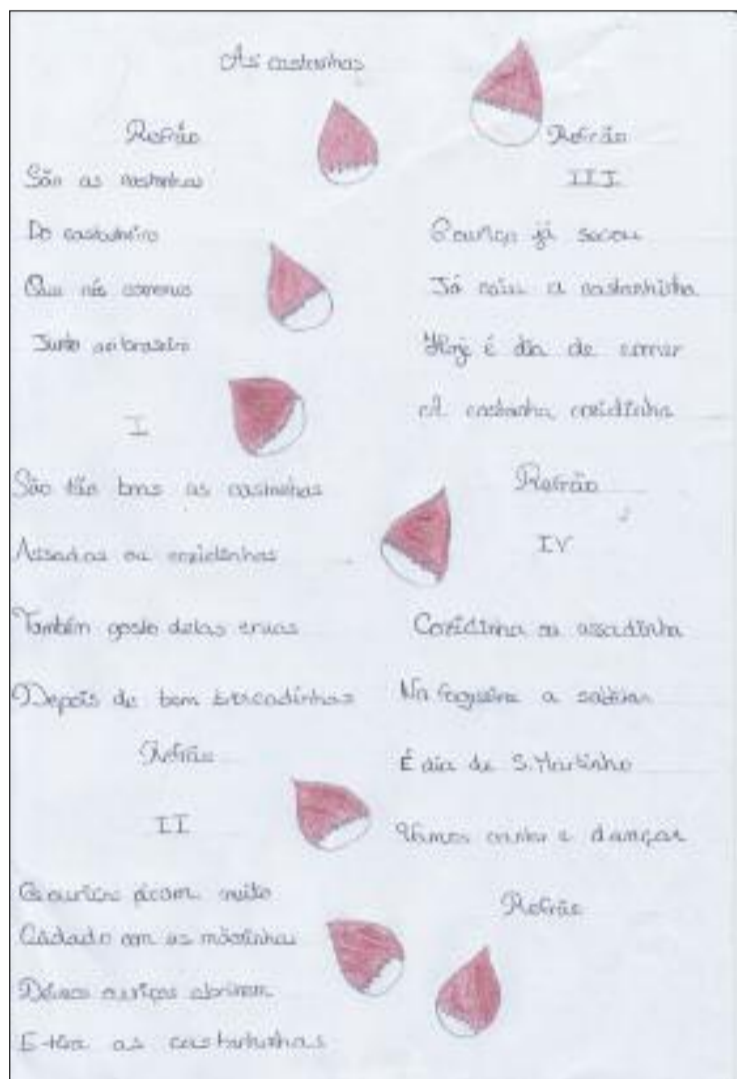 As castanhas
Refrão
São as castanhas
Do castanheiro
Que nós comemos
Junto ao braseiro
I
São tão boas as castanhas
Assadas ou cozidinhas
Também gosto delas cruas
Depois de bem
Refrão
II
Os ouriços picam muito
Cuidado com as mãozinhas
ouriços abrirem
as castanhinhas
Refrão
III
O ouriço já secou
Já caiu a castanhinha
Hoje é dia de comer
A castanha cozidinha
Refrão
IV
Cozidinha ou assadinha
Na fogueira a saltitar
É dia de S. Martinho
Vamos cantar e dançar
Refrão